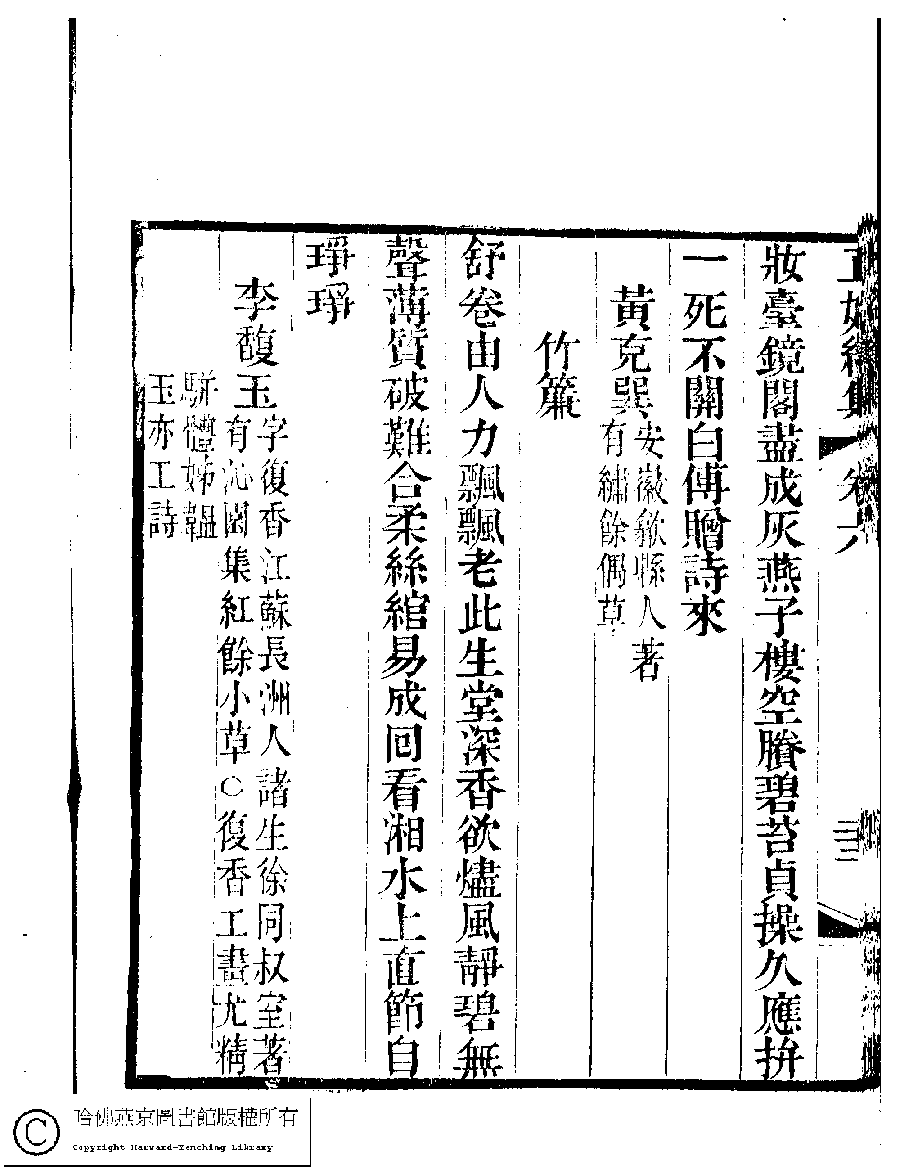 正始續集 卷六
妝臺鏡閣盡成灰燕子樓空賸碧苔貞操久應拚
一死不關白傅贈詩來
黃克巽安徽歙縣人著
有繡餘偶草
竹簾
舒卷由人力飄飄老此生堂深香欲燼風靜碧無
聲薄質破難合柔絲綰易成回看湘水上直節自
琤琤
李馥玉字復香江蘇長洲人諸生徐同叔室著
有沁園集紅餘小草○復香工畫尤精
駢體姊韞
玉亦工詩
哈佛燕京圖書館版權所有
Copyright Harvard-Yenching Library